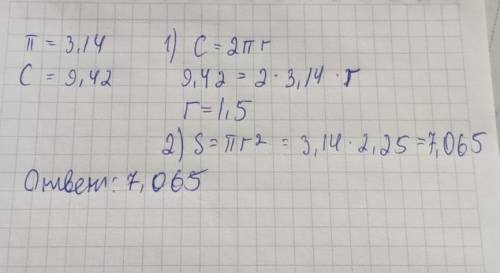 π = 3,14 1) C = 2πr
C = 9,42 9,42 = 2 · 3,14 · r
r = 1,5
2) S = πr² = 3,14 · 2,25 = 7,065
Ответ: 7,065